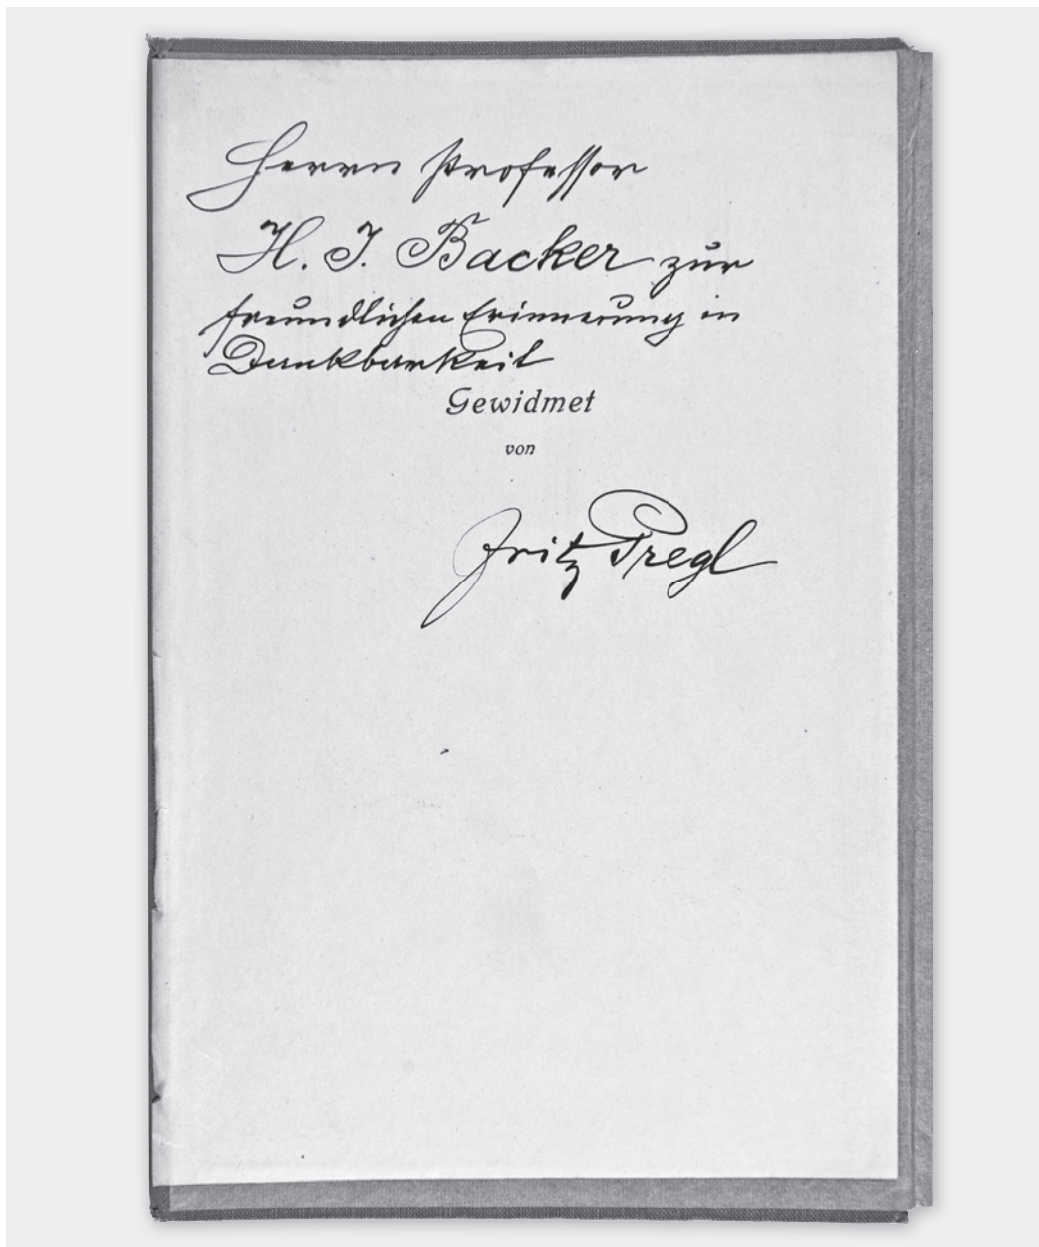 Herrn Professor
H. J. Backer zur
freundlichen Erinnerung in
Dankbarkeit
Gewidmet
von
Fritz Pregl